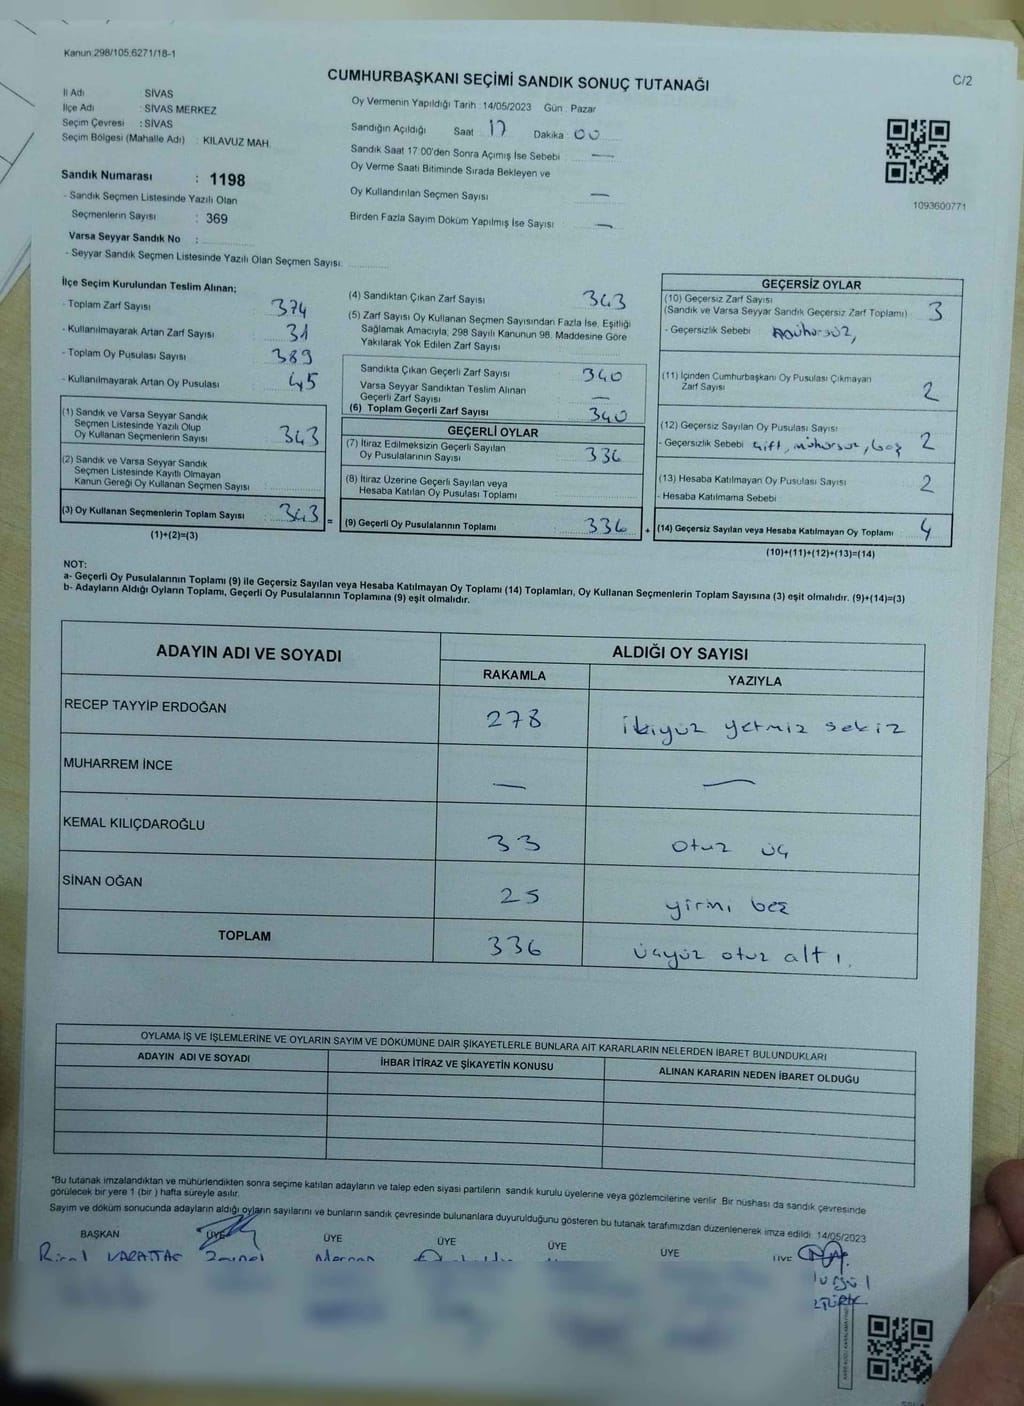 Kanun:298/105,6271/18-1
CUMHURBAŞKANI SEÇİMİ SANDIK SONUÇ TUTANAĞI
C/2
İl Adı SİVAS
İlçe Adı : SİVAS MERKEZ
Seçim Çevresi : SİVAS
Seçim Bölgesi (Mahalle Adı) : KILAVUZ MAH.
Oy Vermenin Yapıldığı Tarih :14/05/2023 Gün : Pazar
Sandığın Açıldığı Saat 17 Dakika : 00
Sandık Saat 17:00'den Sonra Açımış İse Sebebi —
Oy Verme Saati Bitiminde Sırada Bekleyen ve
Oy Kullandırılan Seçmen Sayısı —
Birden Fazla Sayım Döküm Yapılmış İse Sayısı —
1093600771
Sandık Numarası : 1198
- Sandık Seçmen Listesinde Yazılı Olan
Seçmenlerin Sayısı : 369
Varsa Seyyar Sandık No :
- Seyyar Sandık Seçmen Listesinde Yazılı Olan Seçmen Sayısı:
İlçe Seçim Kurulundan Teslim Alınan;
- Toplam Zarf Sayısı 374
- Kullanılmayarak Artan Zarf Sayısı 31
- Toplam Oy Pusulası Sayısı 389
- Kullanılmayarak Artan Oy Pusulası 45
(1) Sandık ve Varsa Seyyar Sandık
Seçmen Listesinde Yazılı Olup
Oy Kullanan Seçmenlerin Sayısı 343
(2) Sandık ve Varsa Seyyar Sandık
Seçmen Listesinde Kayıtlı Olmayan
Kanun Gereği Oy Kullanan Seçmen Sayısı
(3) Oy Kullanan Seçmenlerin Toplam Sayısı 343 =
(1)+(2)=(3)
(4) Sandıktan Çıkan Zarf Sayısı 343
(5) Zarf Sayısı Oy Kullanan Seçmen Sayısından Fazla İse, Eşitliği
Sağlamak Amacıyla; 298 Sayılı Kanunun 98. Maddesine Göre
Yakılarak Yok Edilen Zarf Sayısı
Sandıkta Çıkan Geçerli Zarf Sayısı 340
Varsa Seyyar Sandıktan Teslim Alınan
Geçerli Zarf Sayısı —
(6) Toplam Geçerli Zarf Sayısı 340
GEÇERLİ OYLAR
(7) İtiraz Edilmeksizin Geçerli Sayılan
Oy Pusulalarının Sayısı 336
(8) İtiraz Üzerine Geçerli Sayılan veya
Hesaba Katılan Oy Pusulası Toplamı
(9) Geçerli Oy Pusulalarının Toplamı 336 +
GEÇERSİZ OYLAR
(10) Geçersiz Zarf Sayısı 3
(Sandık ve Varsa Seyyar Sandık Geçersiz Zarf Toplamı)
- Geçersizlik Sebebi
(11) İçinden Cumhurbaşkanı Oy Pusulası Çıkmayan
Zarf Sayısı 2
(12) Geçersiz Sayılan Oy Pusulası Sayısı
- Geçersizlik Sebebi Çift, mühürsüz, boş 2
(13) Hesaba Katılmayan Oy Pusulası Sayısı 2
- Hesaba Katılmama Sebebi
(14) Geçersiz Sayılan veya Hesaba Katılmayan Oy Toplamı 4
(10)+(11)+(12)+(13)=(14)
NOT:
a- Geçerli Oy Pusulalarının Toplamı (9) ile Geçersiz Sayılan veya Hesaba Katılmayan Oy Toplamı (14) Toplamları, Oy Kullanan Seçmenlerin Toplam Sayısına (3) eşit olmalıdır. (9)+(14)=(3)
b- Adayların Aldığı Oyların Toplamı, Geçerli Oy Pusulalarının Toplamına (9) eşit olmalıdır.
ADAYIN ADI VE SOYADI ALDIĞI OY SAYISI
RAKAMLA YAZIYLA
RECEP TAYYİP ERDOĞAN 278 ikiyüz yetmiz sekiz
MUHARREM İNCE — —
KEMAL KILIÇDAROĞLU 33 otuz üç
SİNAN OĞAN 25 yirmi bez
TOPLAM 336 üçyüz otuz altı.
OYLAMA İŞ VE İŞLEMLERİNE VE OYLARIN SAYIM VE DÖKÜMÜNE DAİR ŞİKAYETLERLE BUNLARA AİT KARARLARIN NELERDEN İBARET BULUNDUKLARI
ADAYIN ADI VE SOYADI İHBAR İTİRAZ VE ŞİKAYETİN KONUSU ALINAN KARARIN NEDEN İBARET OLDUĞU
*Bu tutanak imzalandıktan ve mühürlendikten sonra seçime katılan adayların ve talep eden siyasi partilerin sandık kurulu üyelerine veya gözlemcilerine verilir. Bir nüshası da sandık çevresinde
görülecek bir yere 1 (bir ) hafta süreyle asılır.
Sayım ve döküm sonucunda adayların aldığı oyların sayılarını ve bunların sandık çevresinde bulunanlara duyurulduğunu gösteren bu tutanak tarafımızdan düzenlenerek imza edildi. 14/05/2023
BAŞKAN ÜYE ÜYE ÜYE ÜYE ÜYE ÜYE